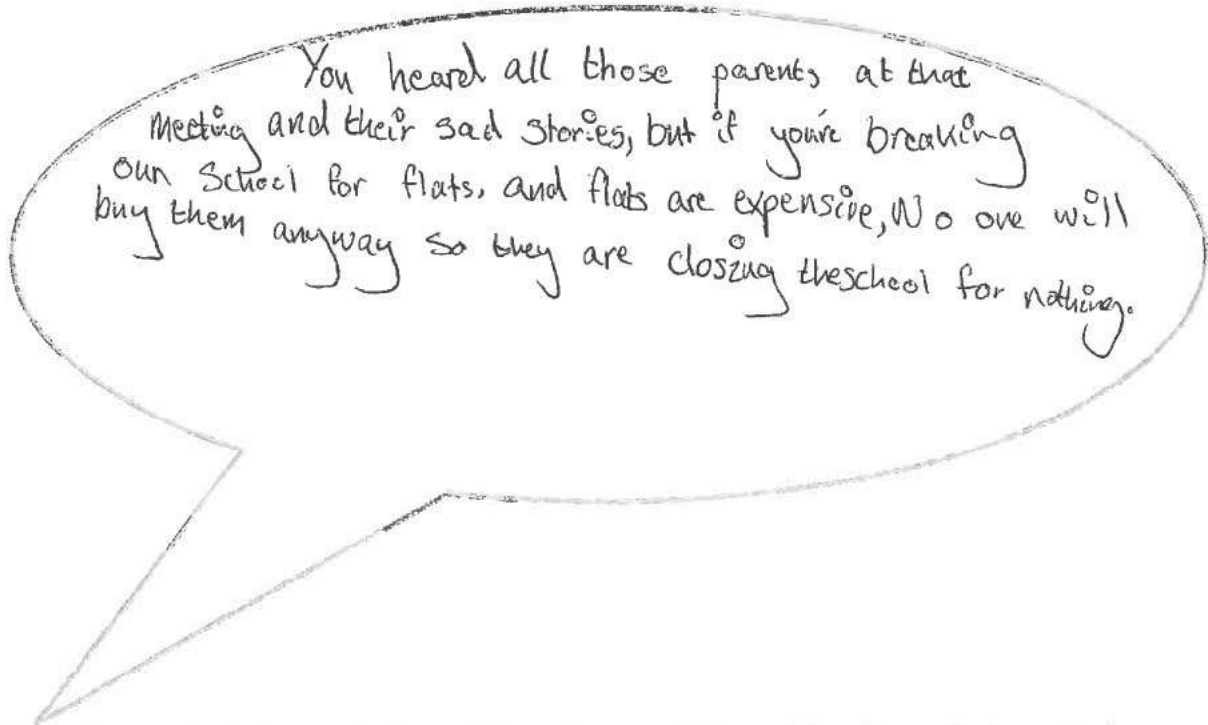 You heard all those parents at that
meeting and their sad stories, but if you're breaking
our School for flats, and flats are expensive, No one will
buy them anyway so they are closing theschool for nothing.